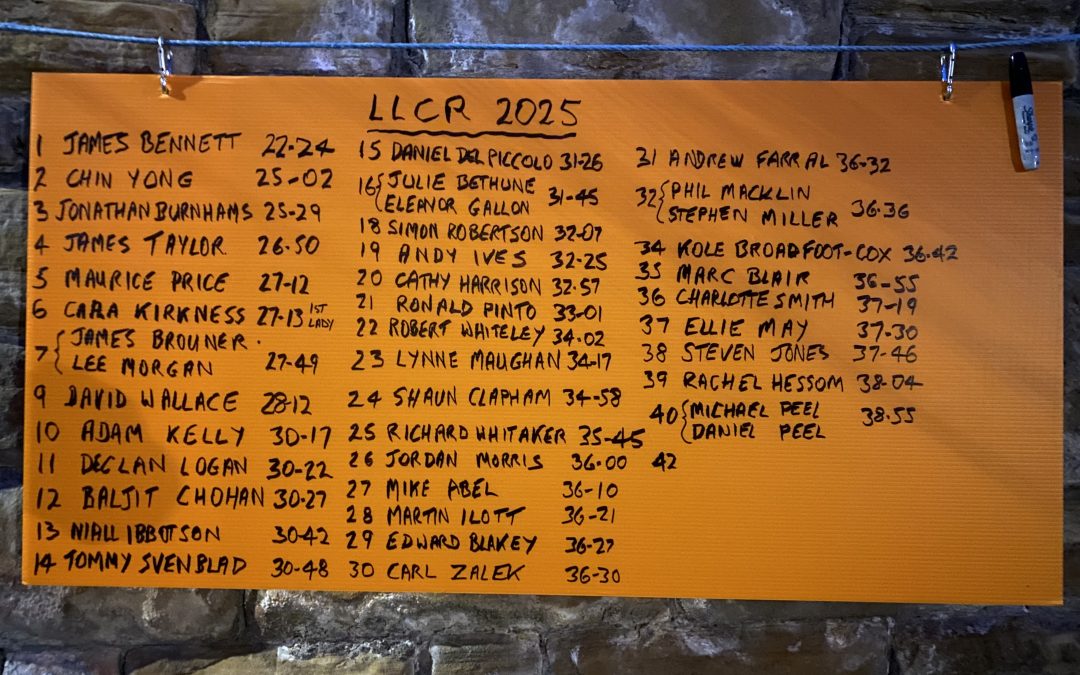 LLCR 2025
1 JAMES BENNETT 22-24
2 CHIN YONG 25-02
3 JONATHAN BURNHAMS 25-29
4 JAMES TAYLOR 26.50
5 MAURICE PRICE 27-12
6 CARA KIRKNESS 27-13 1ST LADY
7 { JAMES BROUNER.
LEE MORGAN 27-49
9 DAVID WALLACE 28-12
10 ADAM KELLY 30-17
11 DECLAN LOGAN 30-22
12 BALJIT CHOHAN 30-27
13 NIALL IBBOTSON 30-42
14 TOMMY SVENBLAD 30-48
15 DANIEL DEL PICCOLO 31-26
16 { JULIE BETHUNE
ELEANOR GALLON 31-45
18 SIMON ROBERTSON 32-07
19 ANDY IVES 32-25
20 CATHY HARRISON 32.57
21 RONALD PINTO 33-01
22 ROBERT WHITELEY 34.02
23 LYNNE MAUGHAN 34-17
24 SHAUN CLAPHAM 34-58
25 RICHARD WHITAKER 35-45
26 JORDAN MORRIS 36.00
27 MIKE ABEL 36-10
28 MARTIN ILOTT 36-21
29 EDWARD BLAKEY 36-27
30 CARL ZALEK 36-30
31 ANDREW FARRAL 36-32
32 { PHIL MACKLIN
STEPHEN MILLER 36.36
34 KOLE BROADFOOT-COX 36-42
35 MARC BLAIR 36-55
36 CHARLOTTE SMITH 37-19
37 ELLIE MAY 37.30
38 STEVEN JONES 37-46
39 RACHEL HESSOM 38-04
40 { MICHAEL PEEL
DANIEL PEEL 38.55
42
Sharpie